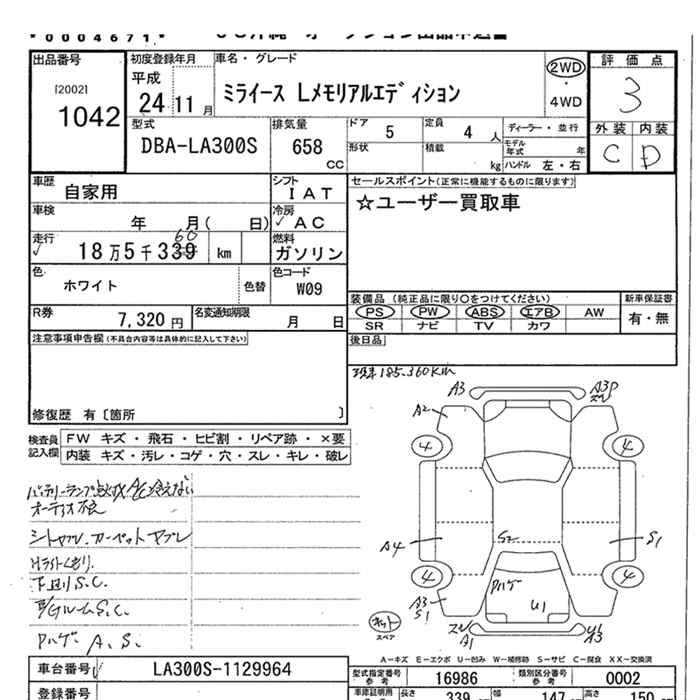 00004671
出品番号 初度登録年月 車名・グレード 評価点
[2002] 平成
1042 24 11月 ミライース Lメモリアルエディション 2WD・4WD 3
外装 内装
型式 排気量 ドア 5 定員 4人 ディーラー・並行
DBA-LA300S 658cc 形状 積載 kg モデル年式 年 C D
ハンドル 左・右
車歴 自家用 シフト IAT セールスポイント(正常に機能するものに限ります)
車検 年 月( 日) 冷房 ✓AC ☆ユーザー買取車
60
走行 ✓ 18万5千339 km 燃料 ガソリン
色 ホワイト 色替 色コード W09
装備品 (純正品に限り○をつけてください) 新車保証書
R券 7,320円 名変通知期限 月 日 PS PW ABS エアB AW 有・無
SR ナビ TV カワ
注意事項申告欄(不具合内容等は具体的に記入して下さい) 後日品
現車185.360Km
修復歴 有〔箇所 〕
検査員記入欄 FW キズ・飛石・ヒビ割・リペア跡・×要
内装 キズ・汚レ・コゲ・穴・スレ・キレ・破レ
A3 A3P
A2
4 4
バッテリーランプ点灯 A/C冷えない
オーディオ不良
シートヤブレ.カーペットヤブレ
A4 S2 S1
Hライトくもり.
下回りS.C.
4 4
E/GルームS.C.
Pハゲ U1
A3
S1
Pハゲ A.S.
スペア
A1 A3
A-キズ E-エクボ U-凹み W-補修跡 S-サビ C-腐食 XX-交換済
車台番号 LA300S-1129964 型式指定番号 参考 16986 類別区分番号 参考 0002
登録番号 車庫証明用 参考 長さ 339 幅 147 高さ 150